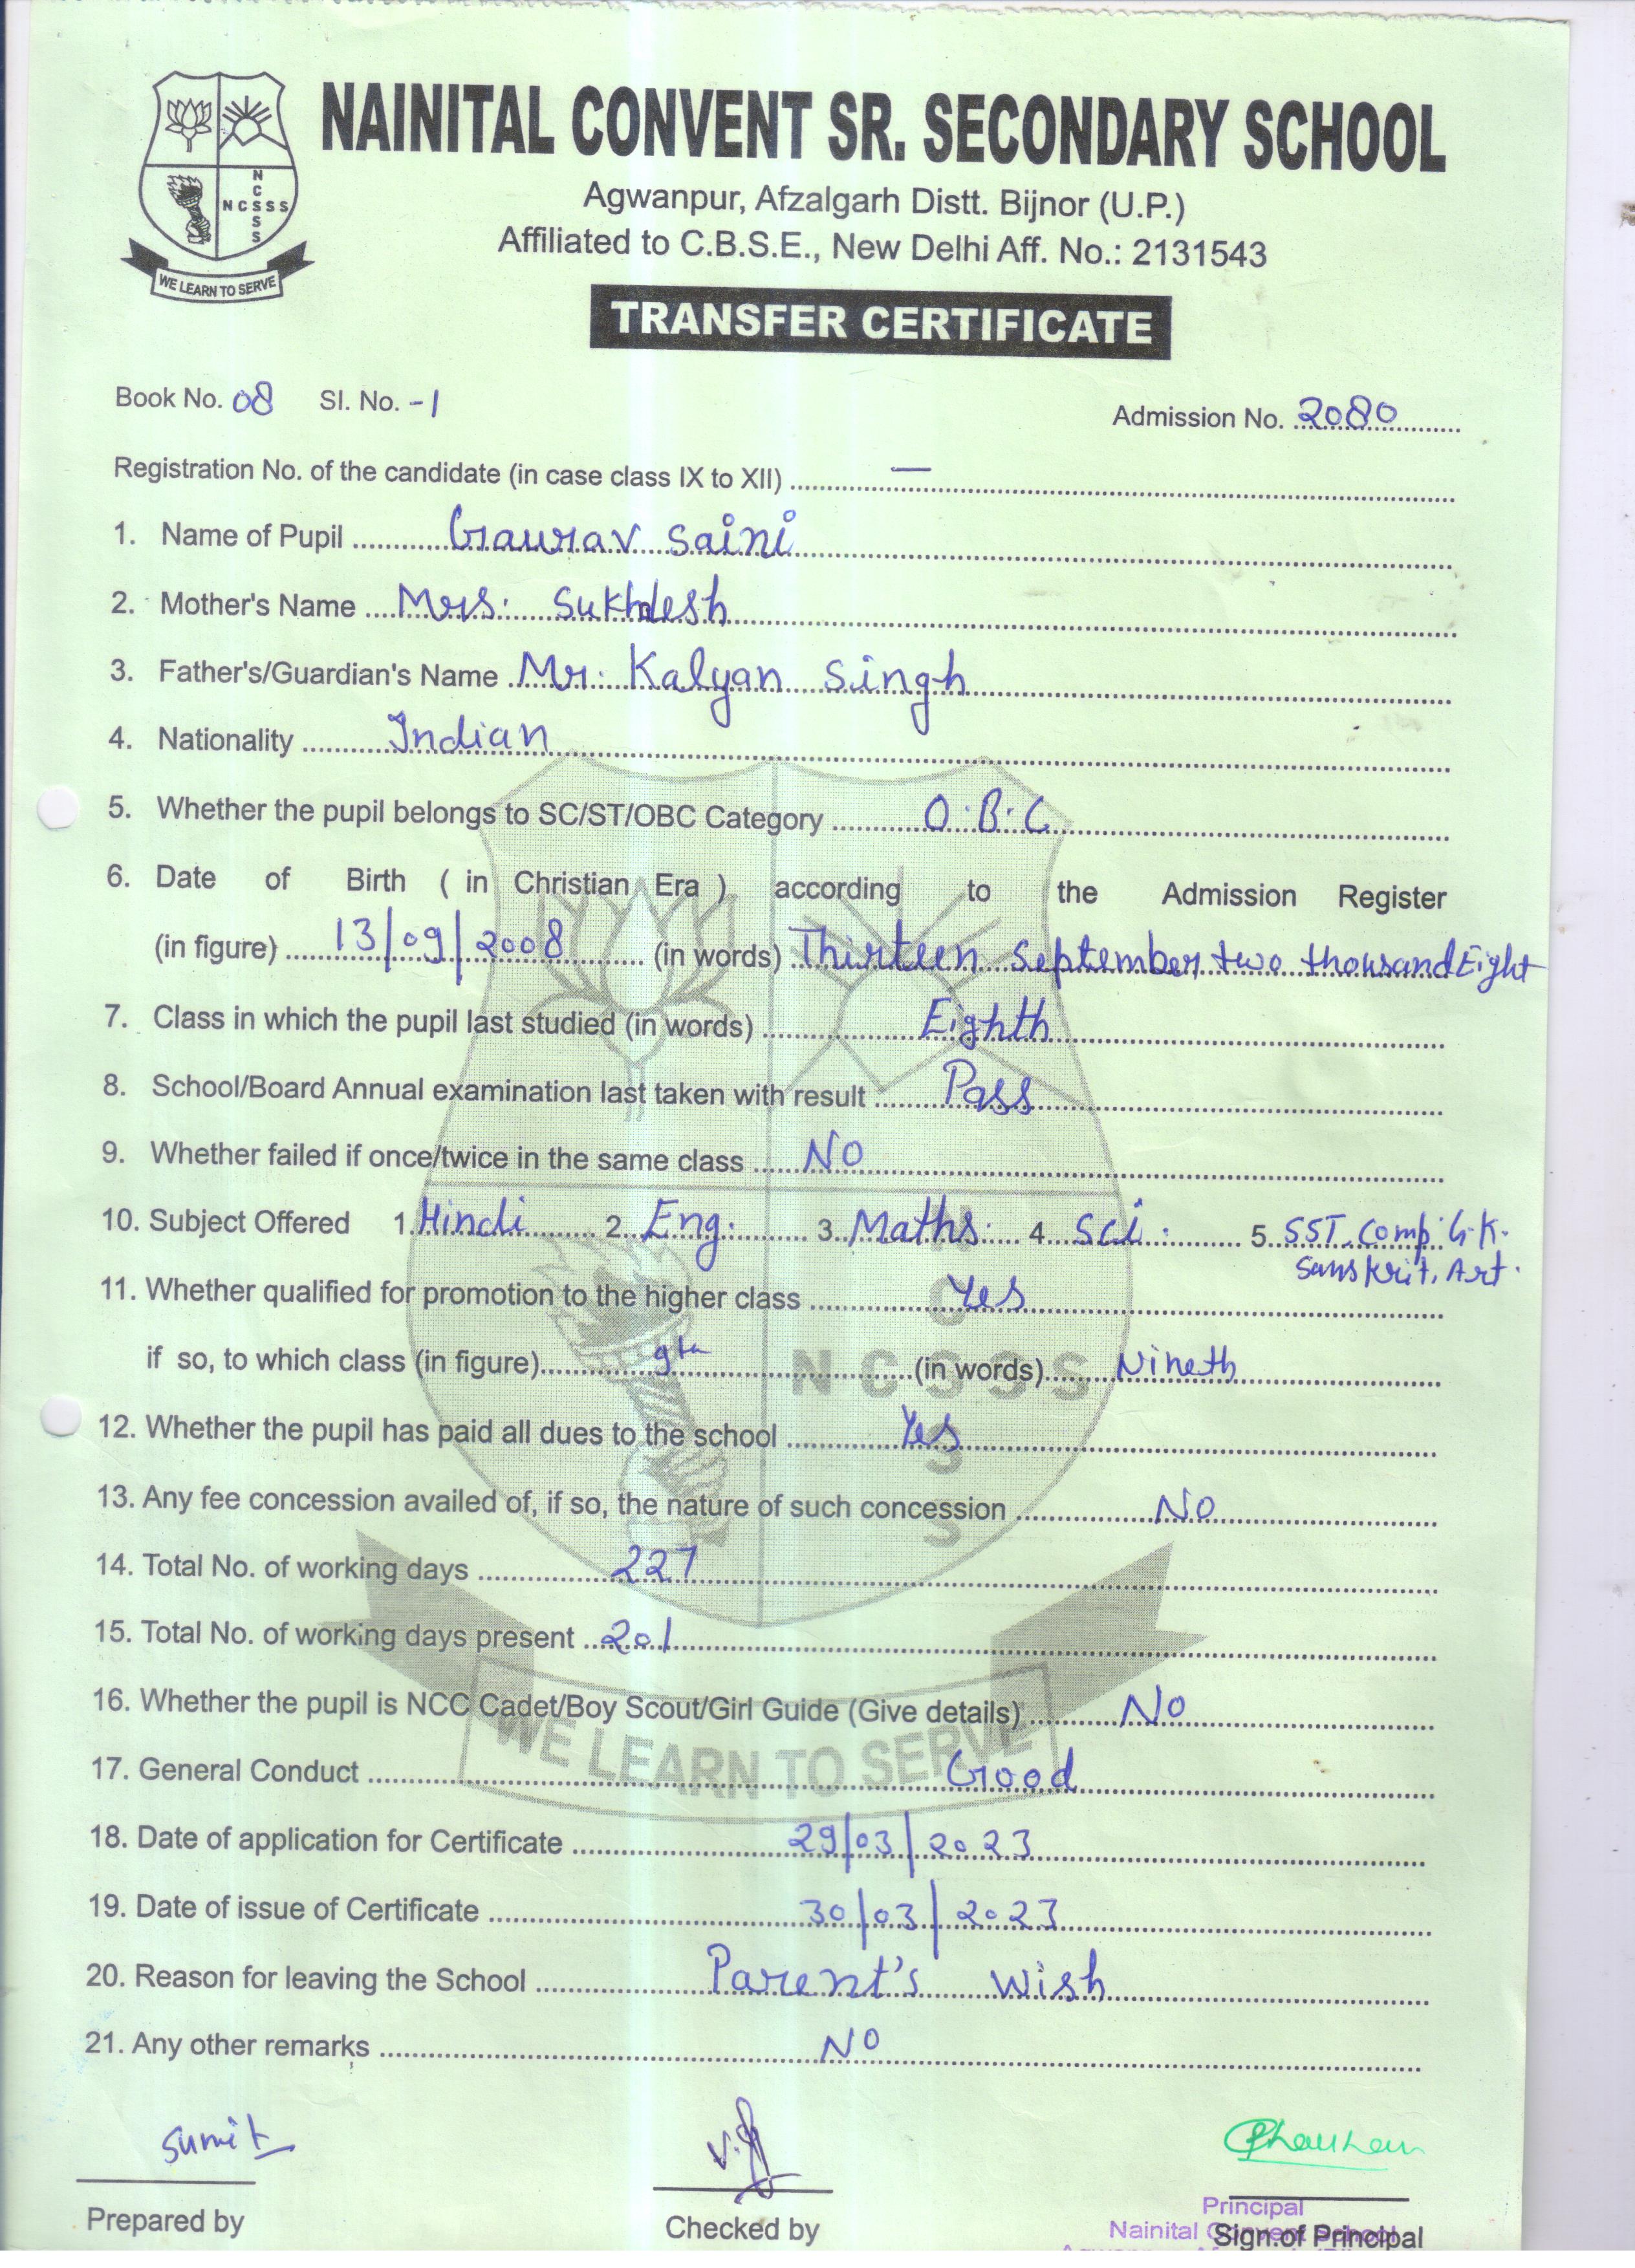 NAINITAL CONVENT SR. SECONDARY SCHOOL
N
C
N C S S S
S
S
WE LEARN TO SERVE
Agwanpur, Afzalgarh Distt. Bijnor (U.P.)
Affiliated to C.B.S.E., New Delhi Aff. No.: 2131543
TRANSFER CERTIFICATE
Book No. 08 Sl. No. -1 Admission No. 2080
Registration No. of the candidate (in case class IX to XII) —
1. Name of Pupil Gaurav Saini
2. Mother's Name Mrs.
3. Father's/Guardian's Name Mr. Kalyan Singh
4. Nationality Indian
5. Whether the pupil belongs to SC/ST/OBC Category O.B.C
6. Date of Birth ( in Christian Era ) according to the Admission Register
(in figure) 13/09/2008 (in words) Thirteen September two thousand Eight
7. Class in which the pupil last studied (in words) Eighth
8. School/Board Annual examination last taken with result Pass
9. Whether failed if once/twice in the same class NO
10. Subject Offered 1. Hindi 2. Eng. 3. Maths. 4. Sci. 5. SST. Comp. G.K.
Sanskrit. Art.
11. Whether qualified for promotion to the higher class Yes
if so, to which class (in figure) 9th (in words) Nineth
12. Whether the pupil has paid all dues to the school Yes
13. Any fee concession availed of, if so, the nature of such concession NO
14. Total No. of working days 227
15. Total No. of working days present 201
16. Whether the pupil is NCC Cadet/Boy Scout/Girl Guide (Give details) No
17. General Conduct Good
18. Date of application for Certificate 29/03/2023
19. Date of issue of Certificate 30/03/2023
20. Reason for leaving the School Parent's Wish
21. Any other remarks NO
N
C
N C S S S
S
S
WE LEARN TO SERVE
Sumit
Prepared by Checked by Sign.of Principal
Principal
Nainital Convent School